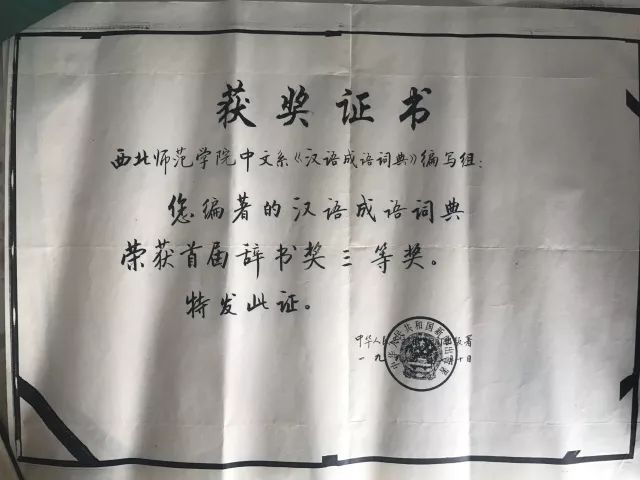 获奖证书
西北师范学院中文系《汉语成语词典》编写组：
您编著的汉语成语词典
荣获首届辞书奖三等奖。
特发此证。
中华人民共和国新闻出版署
一九